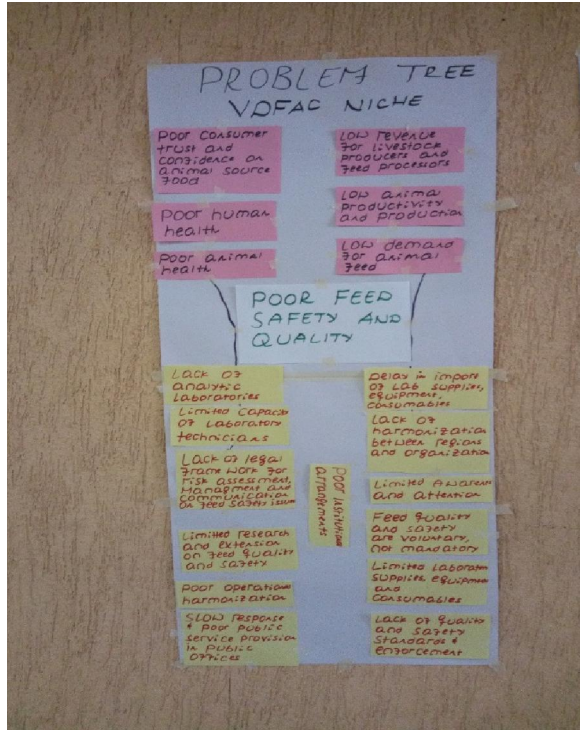 PROBLEM TREE
VDFAC NICHE
Poor Consumer
trust and
confidence on
animal source
food
Poor human
health
Poor animal
health
LOW revenue
for livestock
producers and
feed processors
LOW animal
productivity
and production
LOW demand
for animal
feed
POOR FEED
SAFETY AND
QUALITY
Lack of
analytic
Laboratories
Limited Capaci
of Laboratory
technicians
Lack of legal
frame work for
risk assessment,
Managment and
communication
on feed safety issue
Limited research
and extension
on feed quality
and safety
Poor operationa
harmonization
SLOW response
& poor public
service provision
in public
offices
Poor Institutiona
arrangements
Delay in import
of Lab supplies,
equipment,
consumables
Lack of
harmonization
between regions
and organization
Limited Awaren
and attention
Feed quality
and safety
are voluntary,
not mandatory
Limited laborator
supplies equipmen
and
consumables
Lack of quality
and safety
standards &
enforcement